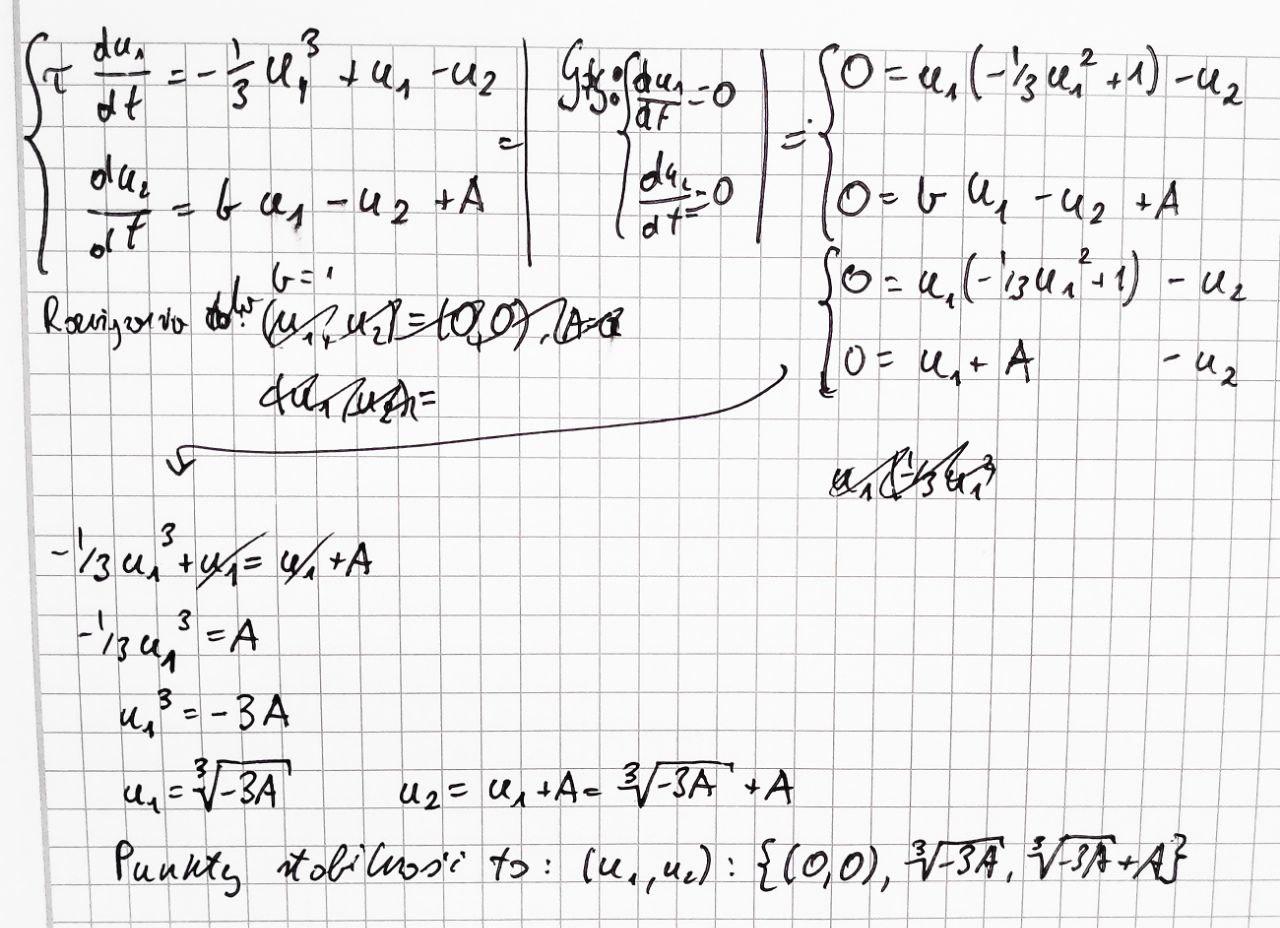 τ du₁/dt = -1/3 u₁³ + u₁ - u₂
du₂/dt = b u₁ - u₂ + A
= | Gdy: { du₁/dt = 0
du₂/dt = 0 |
= { 0 = u₁(-1/3 u₁² + 1) - u₂
0 = b u₁ - u₂ + A
{ 0 = u₁(-1/3 u₁² + 1) - u₂
0 = u₁ + A - u₂
b = 1
(u₁, u₂) = (0,0), A=0
(u₁, u₂) =
u₁(-1/3 u₁²
-1/3 u₁³ + u₁ = u₁ + A
-1/3 u₁³ = A
u₁³ = -3A
u₁ = ∛(-3A) u₂ = u₁ + A = ∛(-3A) + A
Punkty stabilności to: (u₁, u₂): {(0,0), ∛(-3A), ∛(-3A) + A}